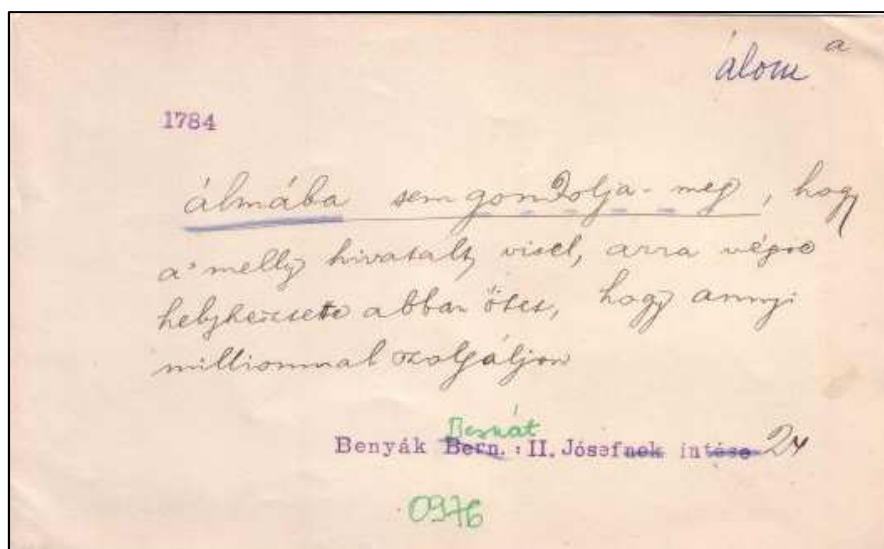 álom a
1784
álmába sem gondolja-meg, hogy
a' melly hivatalt visel, arra végre
helyheztette abban őtet, hogy annyi
milliomnal szolgáljon
Bernát
Benyák Bern.: II. Jósefnek intése 24
0976